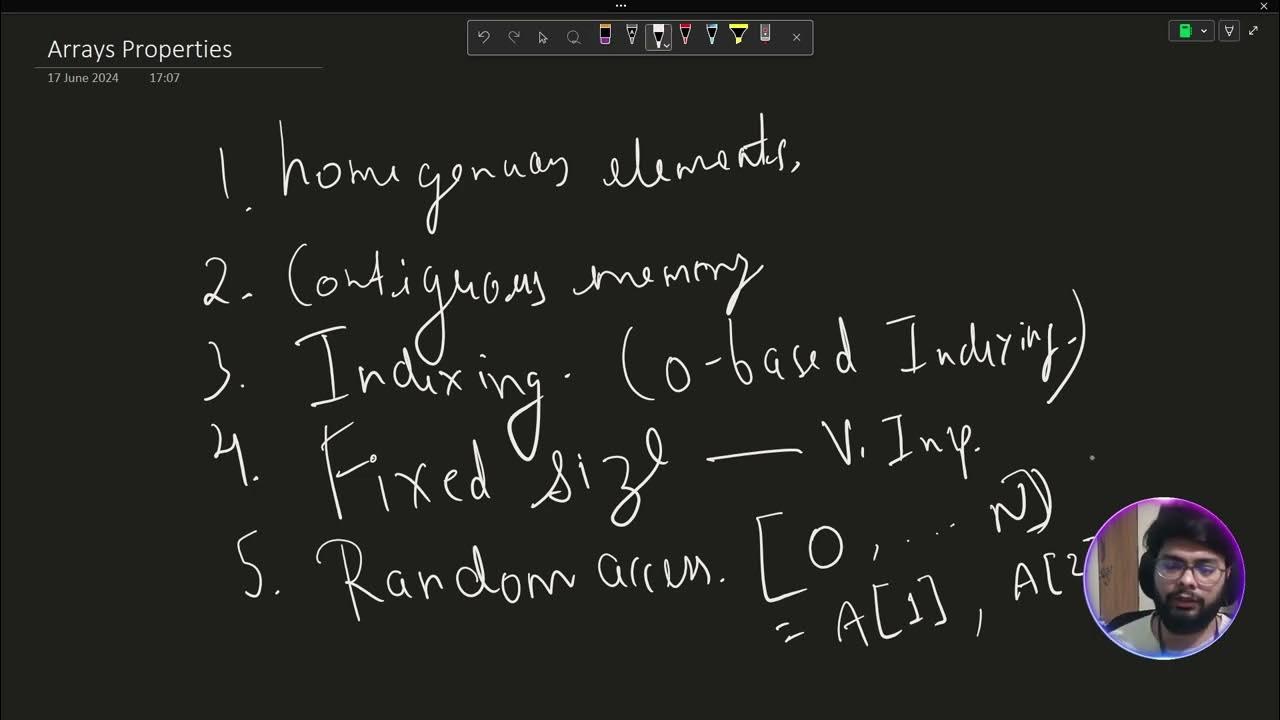 Arrays Properties
17 June 2024 17:07
1. homogenuous elements.
2. Contiguous memory
3. Indexing. (0-based Indexing.)
4. Fixed size — V. Imp.
5. Random access. [0, ... N)
= A[1], A[2]